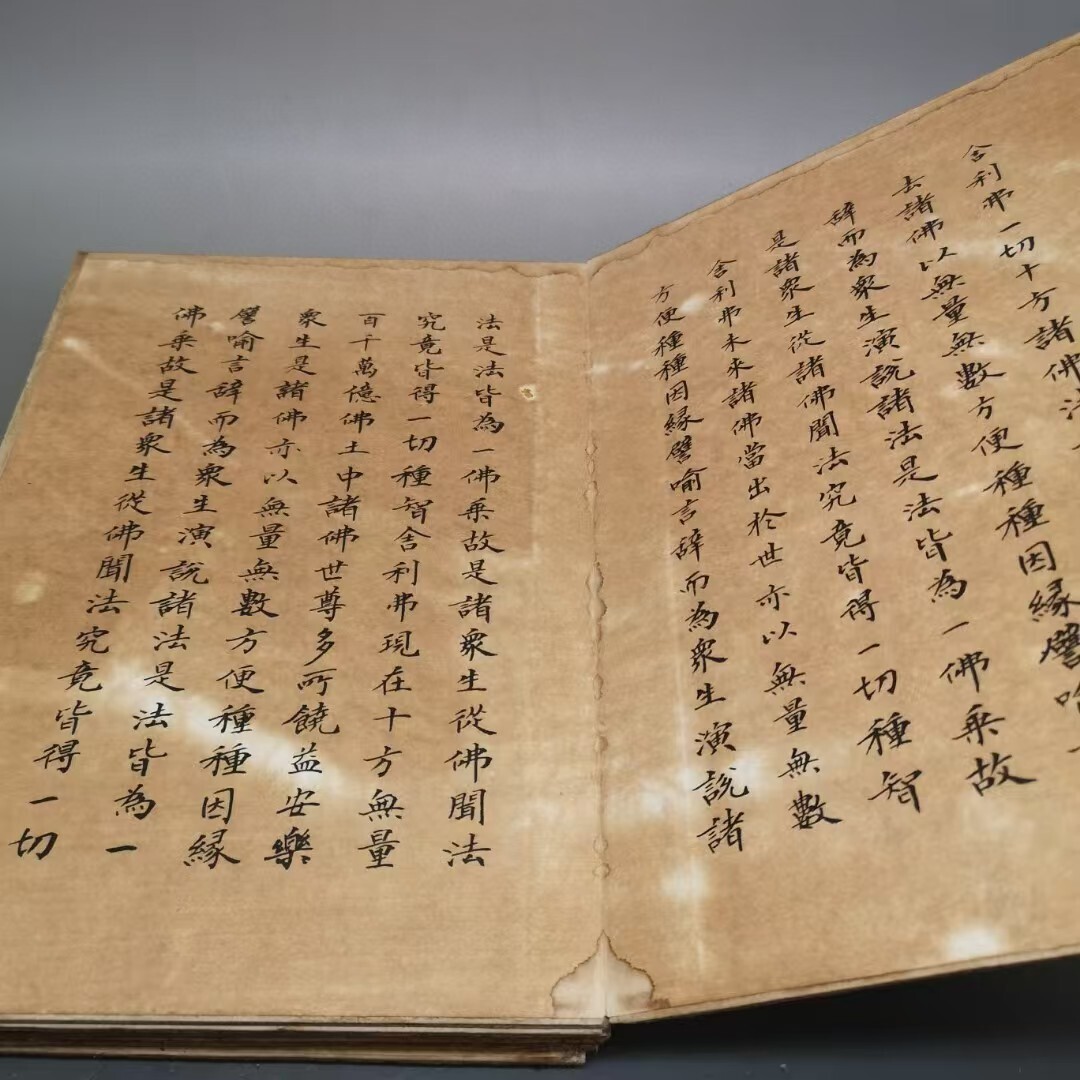 舍利弗一切十方諸佛法
去諸佛以無量無數方便種種因縁譬喻
辞而為衆生演説諸法是法皆為一佛乗故
是諸衆生從諸佛聞法究竟皆得一切種智
舍利弗未来諸佛當出於世亦以無量無數
方便種種因縁譬喻言辞而為衆生演説諸
法是法皆為一佛乗故是諸衆生從佛聞法
究竟皆得一切種智舍利弗現在十方無量
百千萬億佛土中諸佛世尊多所饒益安樂
衆生是諸佛亦以無量無數方便種種因縁
譬喻言辞而為衆生演説諸法是法皆為一
佛乗故是諸衆生從佛聞法究竟皆得一切